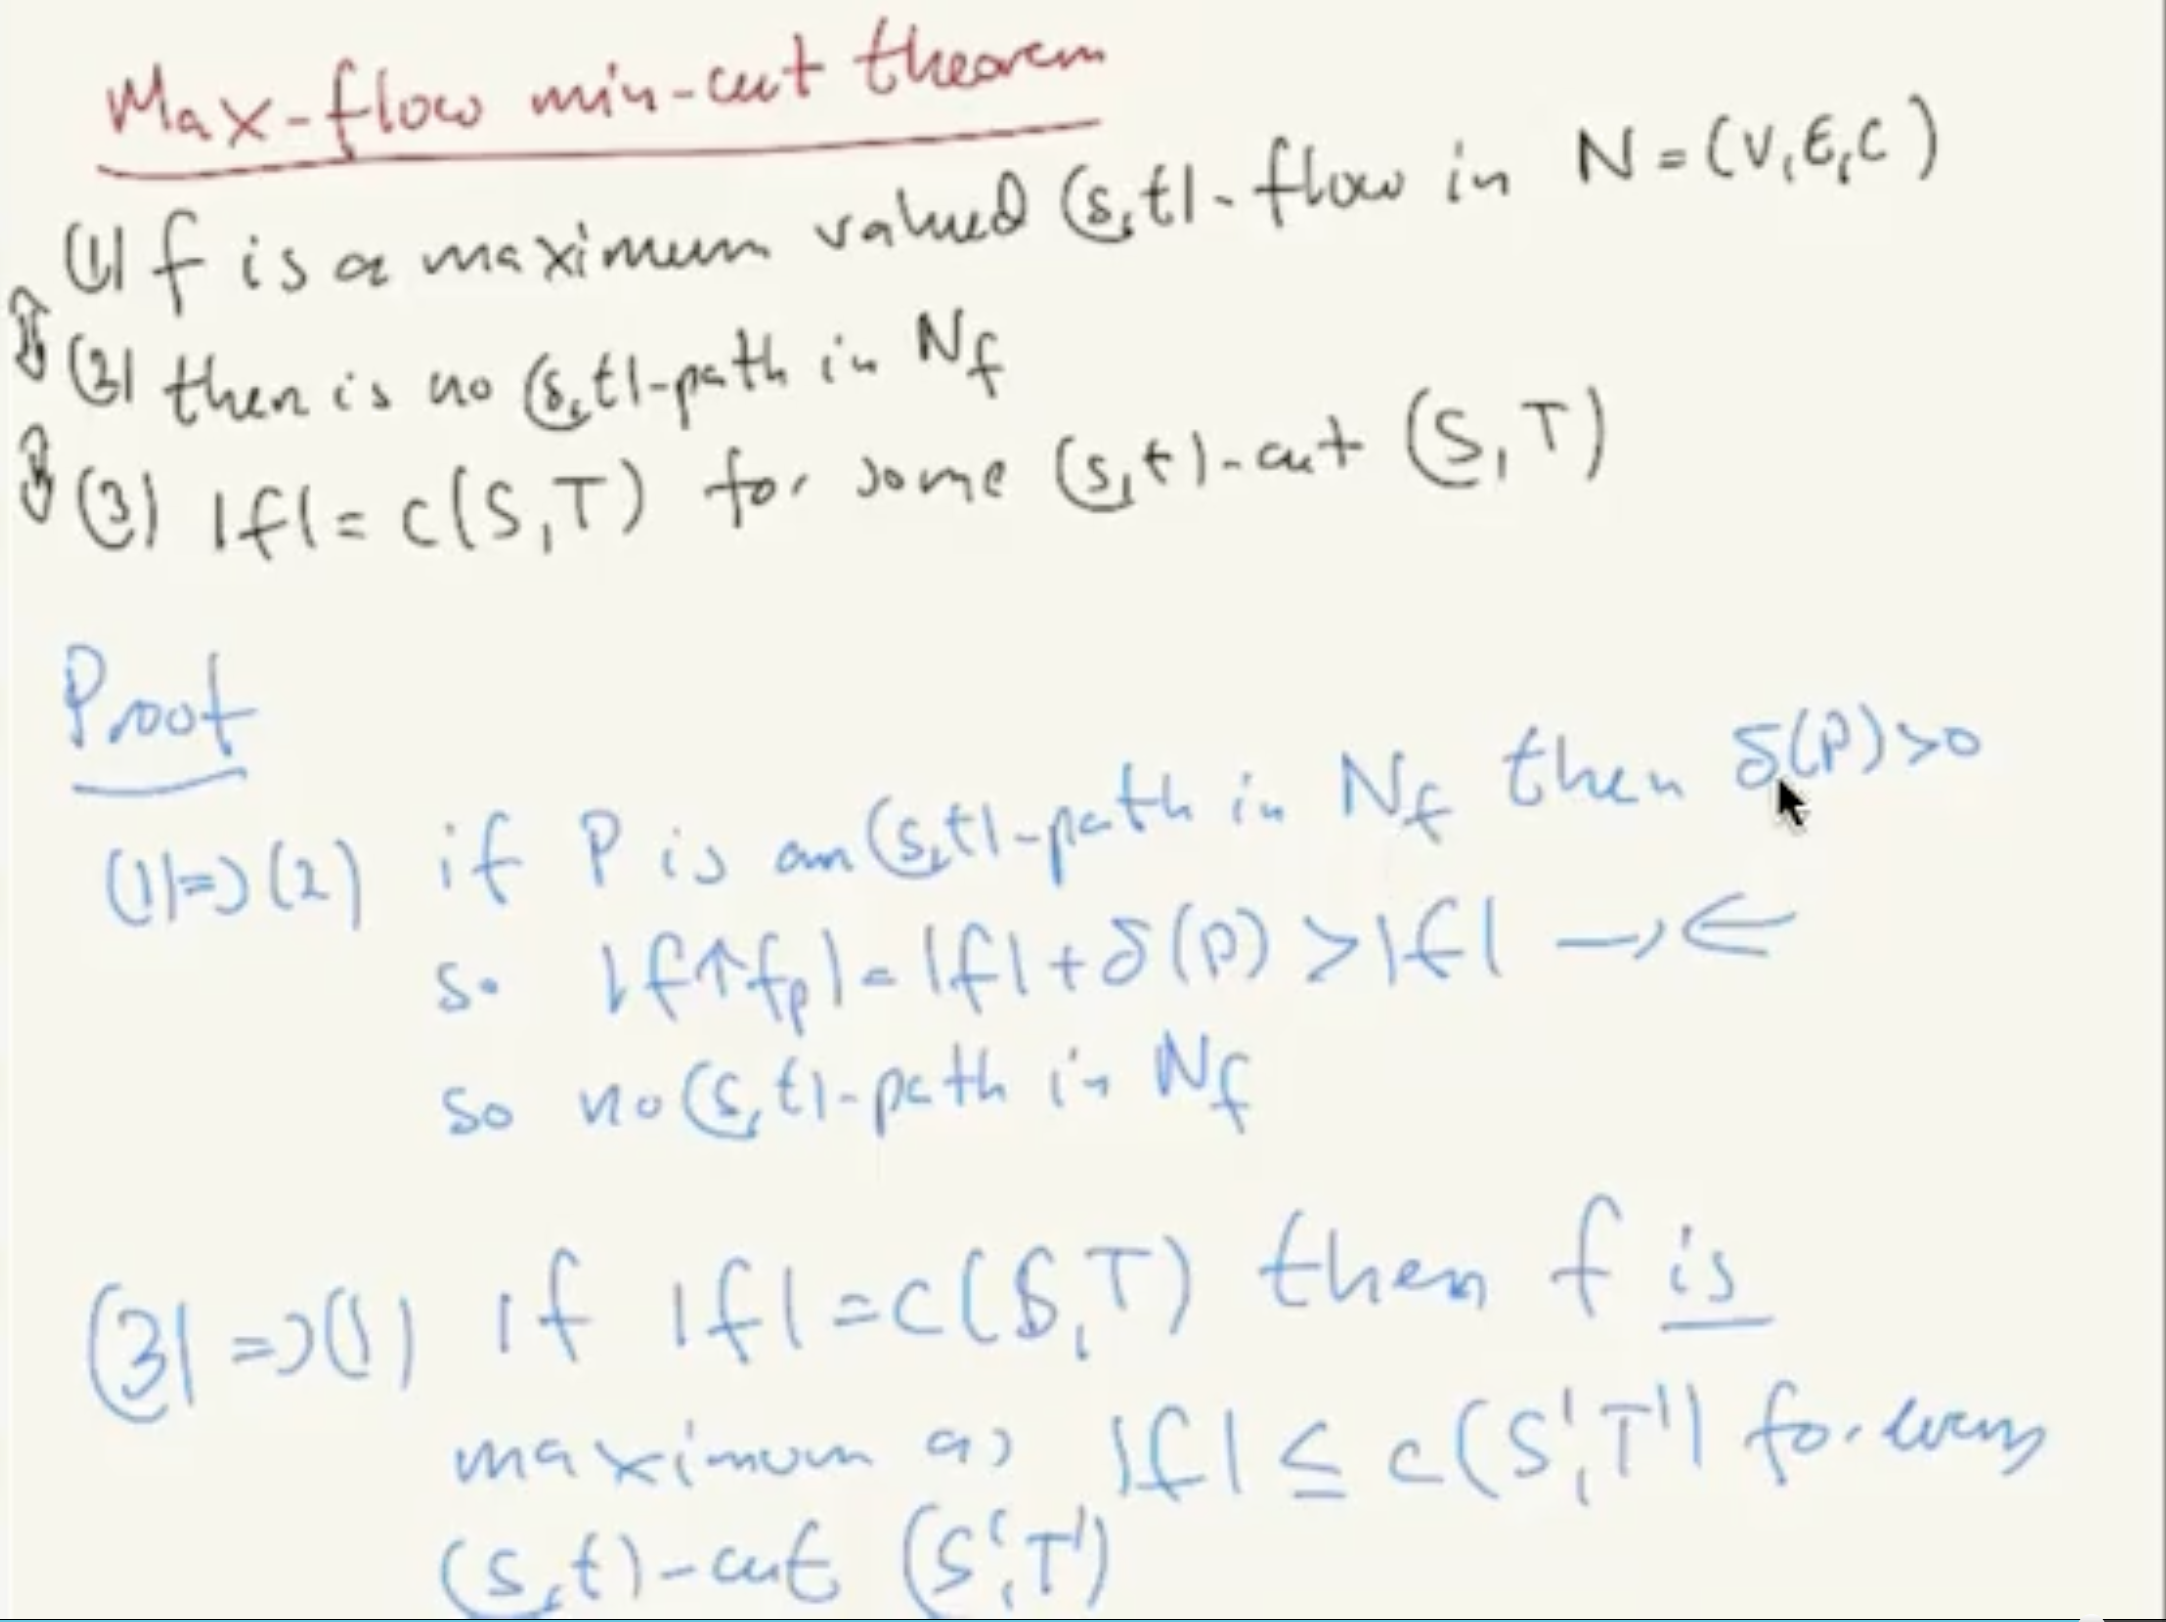 Max-flow min-cut theorem
(1) f is a maximum valued (s,t)-flow in N=(V,E,c)
⇕
(2) then is no (s,t)-path in N_f
⇕
(3) |f| = c(S,T) for some (s,t)-cut (S,T)
Proof
(1)=>(2) if P is an (s,t)-path in N_f then δ(P)>0
so |f↑f_p| = |f|+δ(P) > |f| →←
so no (s,t)-path in N_f
(3)=>(1) if |f| = c(S,T) then f is
maximum as |f| ≤ c(S',T') for every
(s,t)-cut (S',T')